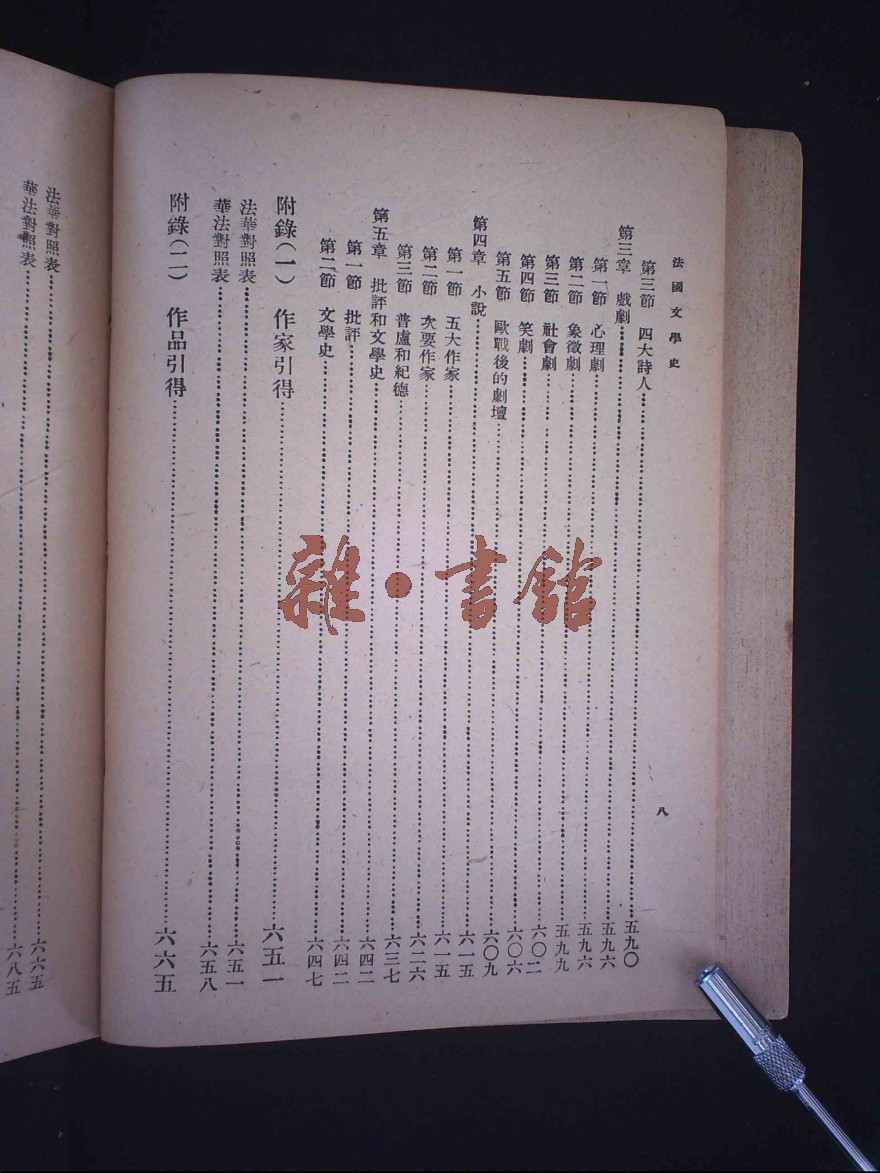 法國文學史
八
第三節 四大詩人……五九〇
第三章 戲劇……五九六
第一節 心理劇……五九六
第二節 象徵劇……五九九
第三節 社會劇……六〇二
第四節 笑劇……六〇六
第五節 歐戰後的劇壇……六〇九
第四章 小說……六一五
第一節 五大作家……六一五
第二節 次要作家……六二六
第三節 普盧和紀德……六三七
第五章 批評和文學史……六四二
第一節 批評……六四二
第二節 文學史……六四七
附錄(一) 作家引得……六五一
法華對照表……六五一
華法對照表……六五八
附錄(二) 作品引得……六六五
法華對照表……六六五
華法對照表……六八五
雜·書館